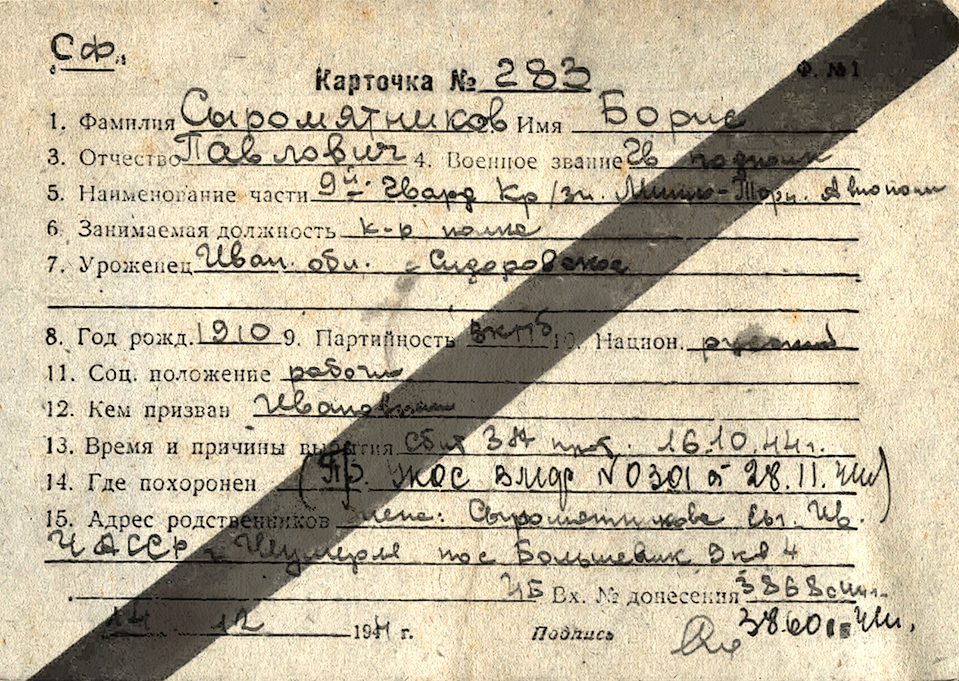 „СФ"
Карточка № 283 Ф. №1
1. Фамилия Сыромятников Имя Борис
3. Отчество Павлович 4. Военное звание Гв подполк
5. Наименование части 9й Гвард Кр/зн. Минно-Торп. Авиаполк
6. Занимаемая должность к-р полка
7. Уроженец Иван. обл. Сидоровское
8. Год рожд. 1910 9. Партийность ВКПб 10. Национ. русский
11. Соц. положение рабочий
12. Кем призван Ивановским
13. Время и причины выбытия Сбит ЗА прот. 16.10.44г.
14. Где похоронен (Пр. УКОС ВМФ №0301 от 28.11.44)
15. Адрес родственников жена: Сыромятникова
ЧАССР г. Шумерля пос Большевик 4
Вх. № донесения 3868
14 12 1944 г. Подпись 3860